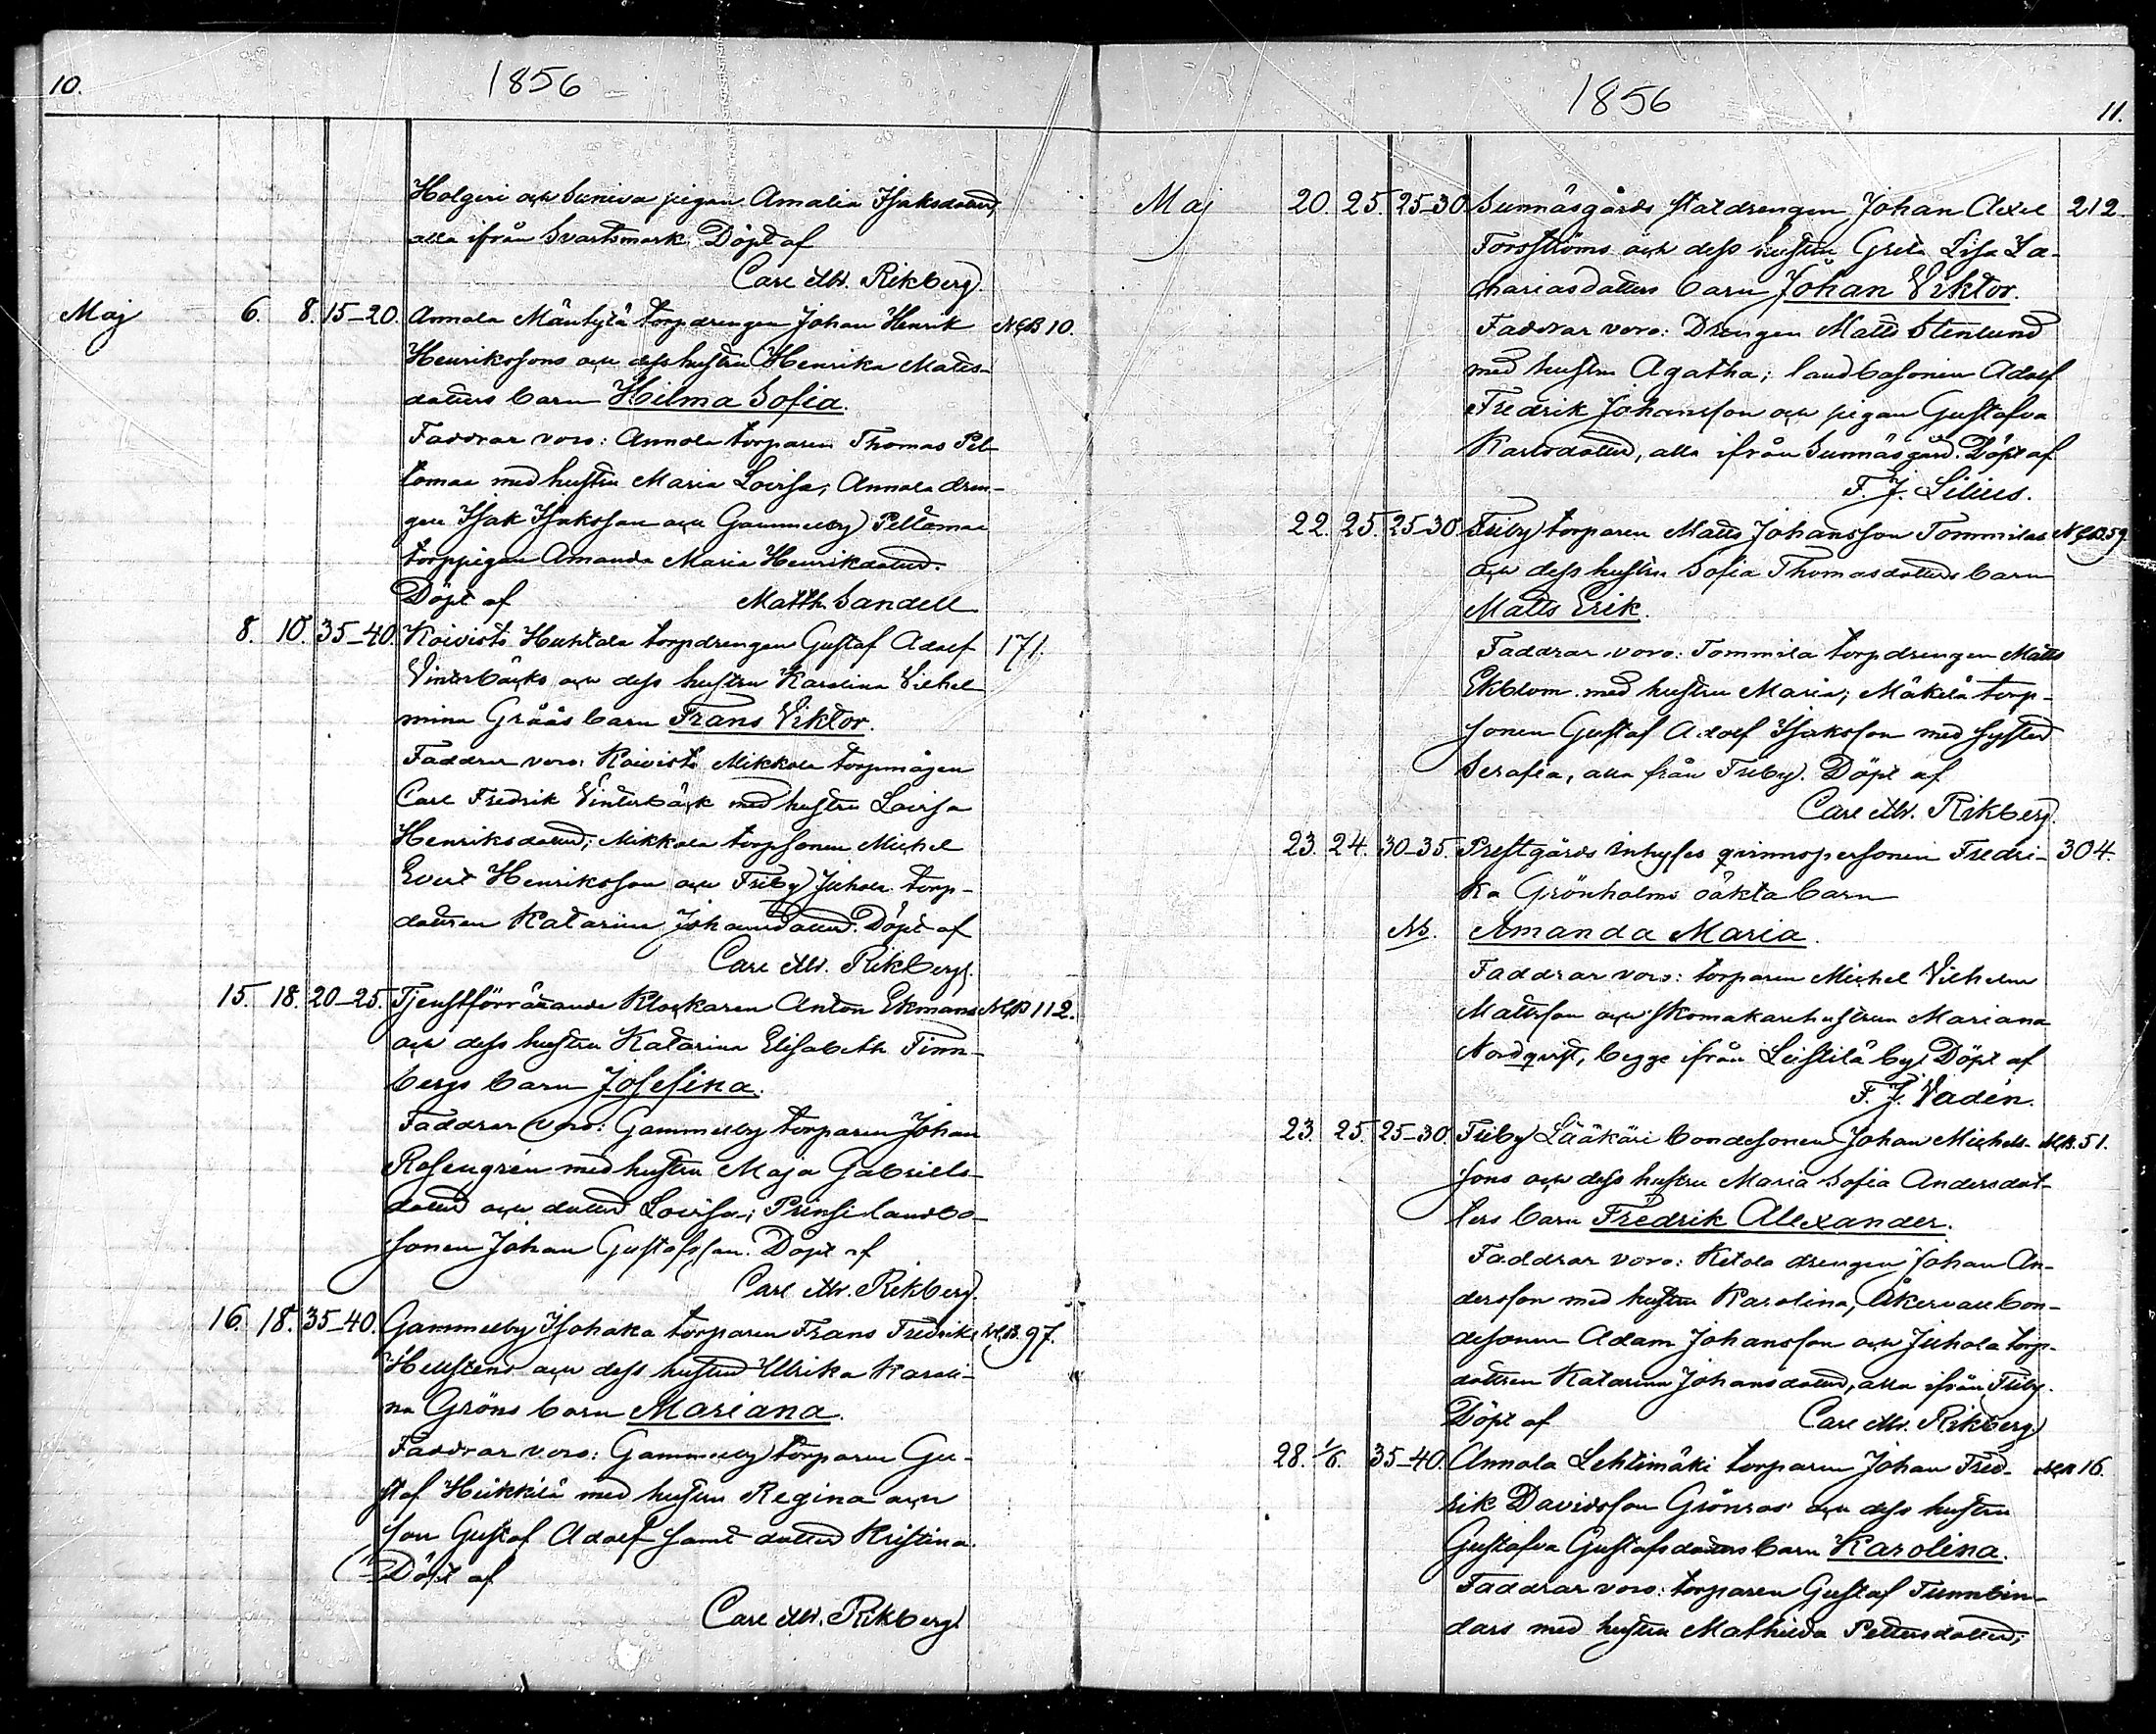 10.
1856
Holgeri och Suniva pigan Amalia Isaksdotter,
alla ifrån Svartsmark. Döpt af
Carl Mr. Rikberg.
Maj 6. 8. 15–20. Annala Mäntylä torpdrengen Johan Henrik NGB 10.
Henrikssons och dess hustru Henrika Matts-
dotters barn Hilma Sofia.
Faddrar voro: Annola torparen Thomas Pel-
tomaa med hustru Maria Lovisa; Annala dren-
gen Isak Isaksson och Gammelby Peltomaa
torppigan Amanda Maria Henriksdotter.
Döpt af Matth. Sandell
8. 10. 35–40. Koivisto Huhtala torpdrengen Gustaf Adolf 171.
Vinterbäcks och dess hustru Karolina Vilhel
mina Gråås barn Frans Viktor.
Faddrar voro: Koivisto Mikkola torpmågen
Carl Fredrik Vinterbäck med hustru Lovisa
Henriksdotter; Mikkola torpsonen Michel
Evert Henriksson och Friby Juhola torp-
dottren Katarina Johansdotter. Döpt af
Carl Mr. Rikberg.
15. 18. 20–25. Tjenstförrättande Klockaren Anton Ekmans NGB 112.
och dess hustru Katarina Elisabeth Finn-
bergs barn Josefina.
Faddrar voro: Gammelby torparen Johan
Rosengrén med hustru Maja Gabriels-
dotter och dotter Lovisa; Prinsi landbo-
sonen Johan Gustafsson. Döpt af
Carl Mr. Rikberg.
16. 18. 35–40. Gammelby Isohaka torparen Frans Fredrik NGB. 97.
Hellstens och dess hustru Ulrika Karoli-
na Gröns barn Mariana.
Faddrar voro: Gammelby torparen Gu-
staf Heikkilä med hustru Regina och
son Gustaf Adolf samt dotter Kristina.
Döpt af
Carl Mr. Rikberg.
1856
11.
Maj 20. 25. 25–30 Sunnäsgårds statdrengen Johan Axel 212.
Forsströms och dess hustru Greta Lisa Za-
chariasdotters barn Johan Viktor.
Faddrar voro: Drengen Matts Stenlund
med hustru Agatha; landbosonen Adolf
Fredrik Johansson och pigan Gustafva
Karlsdotter, alla ifrån Sunnäsgård. Döpt af
F. J. Lilius.
22. 25. 25–30. Friby torparen Matts Johansson Tommilas NGB 59.
och dess hustru Sofia Thomasdotters barn
Matts Erik.
Faddrar voro: Tommila torpdrengen Matts
Ekblom med hustru Maria; Mäkilä torp-
sonen Gustaf Adolf Isaksson med syster
Serafia, alla från Friby. Döpt af
Carl Mr. Rikberg.
23. 24. 30–35. Prestgårds inhyses qvinnspersonen Fredri- 304.
ka Grönholms oäkta barn
NB. Amanda Maria.
Faddrar voro: torparen Michel Vilhelm
Mattsson och skomakarehustrun Mariana
Nordqvist, begge ifrån Leistilä by. Döpt af
F. J. Vadén.
23. 25. 25–30 Friby Lääkäri bondesonen Johan Michels- NGB. 51.
sons och dess hustru Maria Sofia Andersdot-
ters barn Fredrik Alexander.
Faddrar voro: Ketola drengen Johan An-
dersson med hustru Karolina, Åkervall bon-
desonen Adam Johansson och Juhola torp-
dottren Katarina Johansdotter, alla ifrån Friby.
Döpt af Carl Mr. Rikberg.
28. 1/6. 35–40. Annala Lehtimäki torparen Johan Fred- NGB 16.
rik Davidsson Grönros' och dess hustru
Gustafva Gustafsdotters barn Karolina.
Faddrar voro: torparen Gustaf Tunnbin-
dars med hustru Mathilda Pettersdotter;